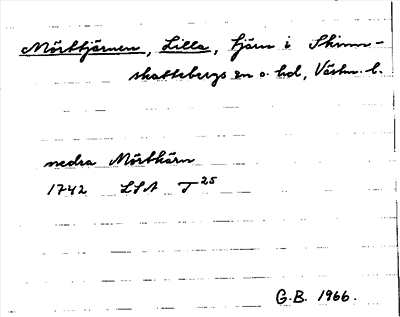 Mörttjärnen, Lilla, tjärn i Skinn-
skattebergs sn o. hd, Västm. l.
nedra Mörtkärn
1742 LSA T25
G.B. 1966.